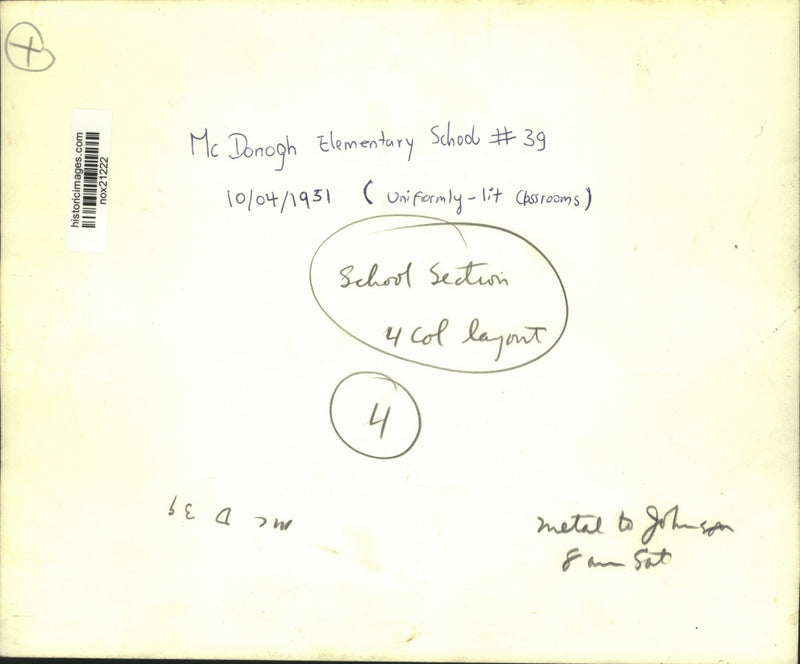 +
historicimages.com
nox21222
Mc Donogh Elementary School # 39
10/04/1951 (Uniformly-lit Classrooms)
School Section
4 Col layout
4
Mc D 39
metal to Johnson
8 am Sat